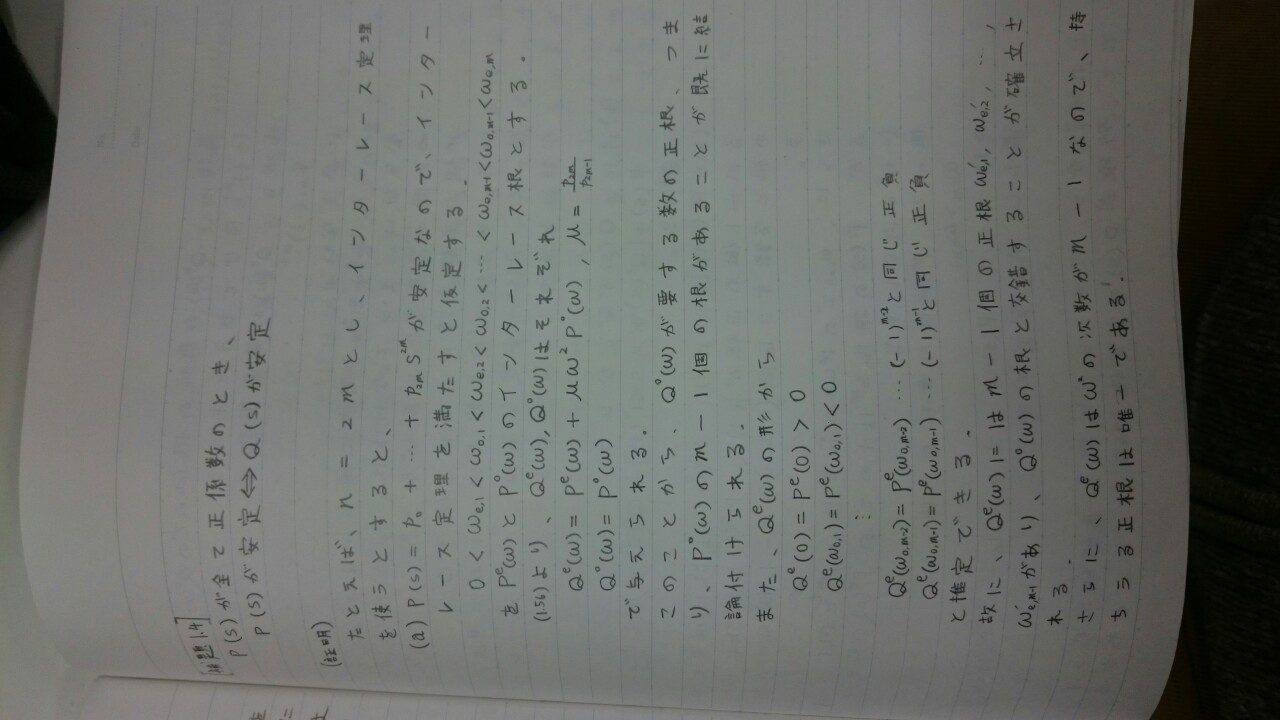 No.
Date
[補題1.4]
P(s)が全て正係数のとき、
P(s)が安定⇔Q(s)が安定
(証明)
たとえば、n = 2mとし、インターレース定理
を使うとすると、
(a) P(s) = p₀ + … + p₂ₘ s²ᵐが安定なので、インター
レース定理を満たすと仮定する.
0 < ωe,1 < ωo,1 < ωe,2 < ωo,2 < … < ωe,m-1 < ωo,m-1 < ωe,m
をPᵉ(ω)とPᵒ(ω)のインターレース根とする.
(1.56)より、Qᵉ(ω), Qᵒ(ω)はそれぞれ
Qᵉ(ω) = Pᵉ(ω) + μω² Pᵒ(ω) , μ = p₂ₘ/p₂ₘ₋₁
Qᵒ(ω) = Pᵒ(ω)
で与えられる.
このことから、Qᵒ(ω)が要する数の正根、つま
り、Pᵒ(ω)のm-1個の根があることが既に結
論付けられる.
また、Qᵉ(ω)の形から
Qᵉ(0) = Pᵉ(0) > 0
Qᵉ(ωo,1) = Pᵉ(ωo,1) < 0
⋮
Qᵉ(ωo,m-2) = Pᵉ(ωo,m-2) …(-1)ᵐ⁻²と同じ正負
Qᵉ(ωo,m-1) = Pᵉ(ωo,m-1) …(-1)ᵐ⁻¹と同じ正負
と推定できる.
故に、Qᵉ(ω)にはm-1個の正根ω'e,1, ω'e,2, …,
ω'e,m-1があり、Qᵒ(ω)の根と交錯することが確立さ
れる.
さらに、Qᵉ(ω)はω²の次数がm-1なので、持
ちうる正根は唯一である.